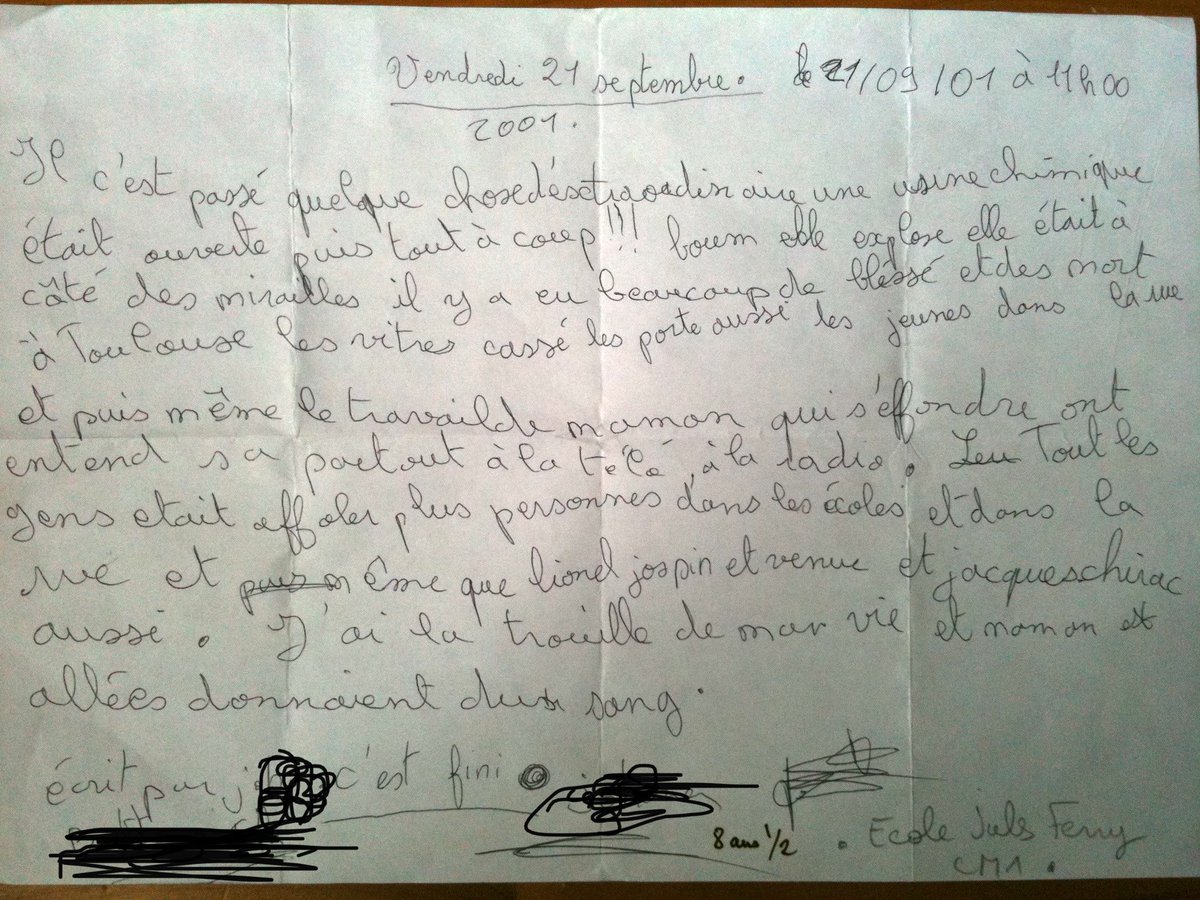 Vendredi 21 septembre. le 21/09/01 à 11h00
2001.
Il c'est passé quelque chose désxtraordinaire une usine chimique
était ouverte puis tout à coup !!! boum elle explose elle était à
côté des mirailles il y a eu beaucoup de bléssé et des mort
à Toulouse les vitres cassé les porte aussi les jeunes dans la rue
et puis même le travail de maman qui s'éffondre ont
entend sa partout à la télé, à la radio. Tout les
gens etait affoler plus personnes dans les écoles et dans la
rue et même que lionel jospin et venue et jacques chirac
aussi. J'ai la trouille de mar vie et maman est
allées donnaient du sang.
écrit par c'est fini
8 ans 1/2 . Ecole Juls Ferry
CM1.